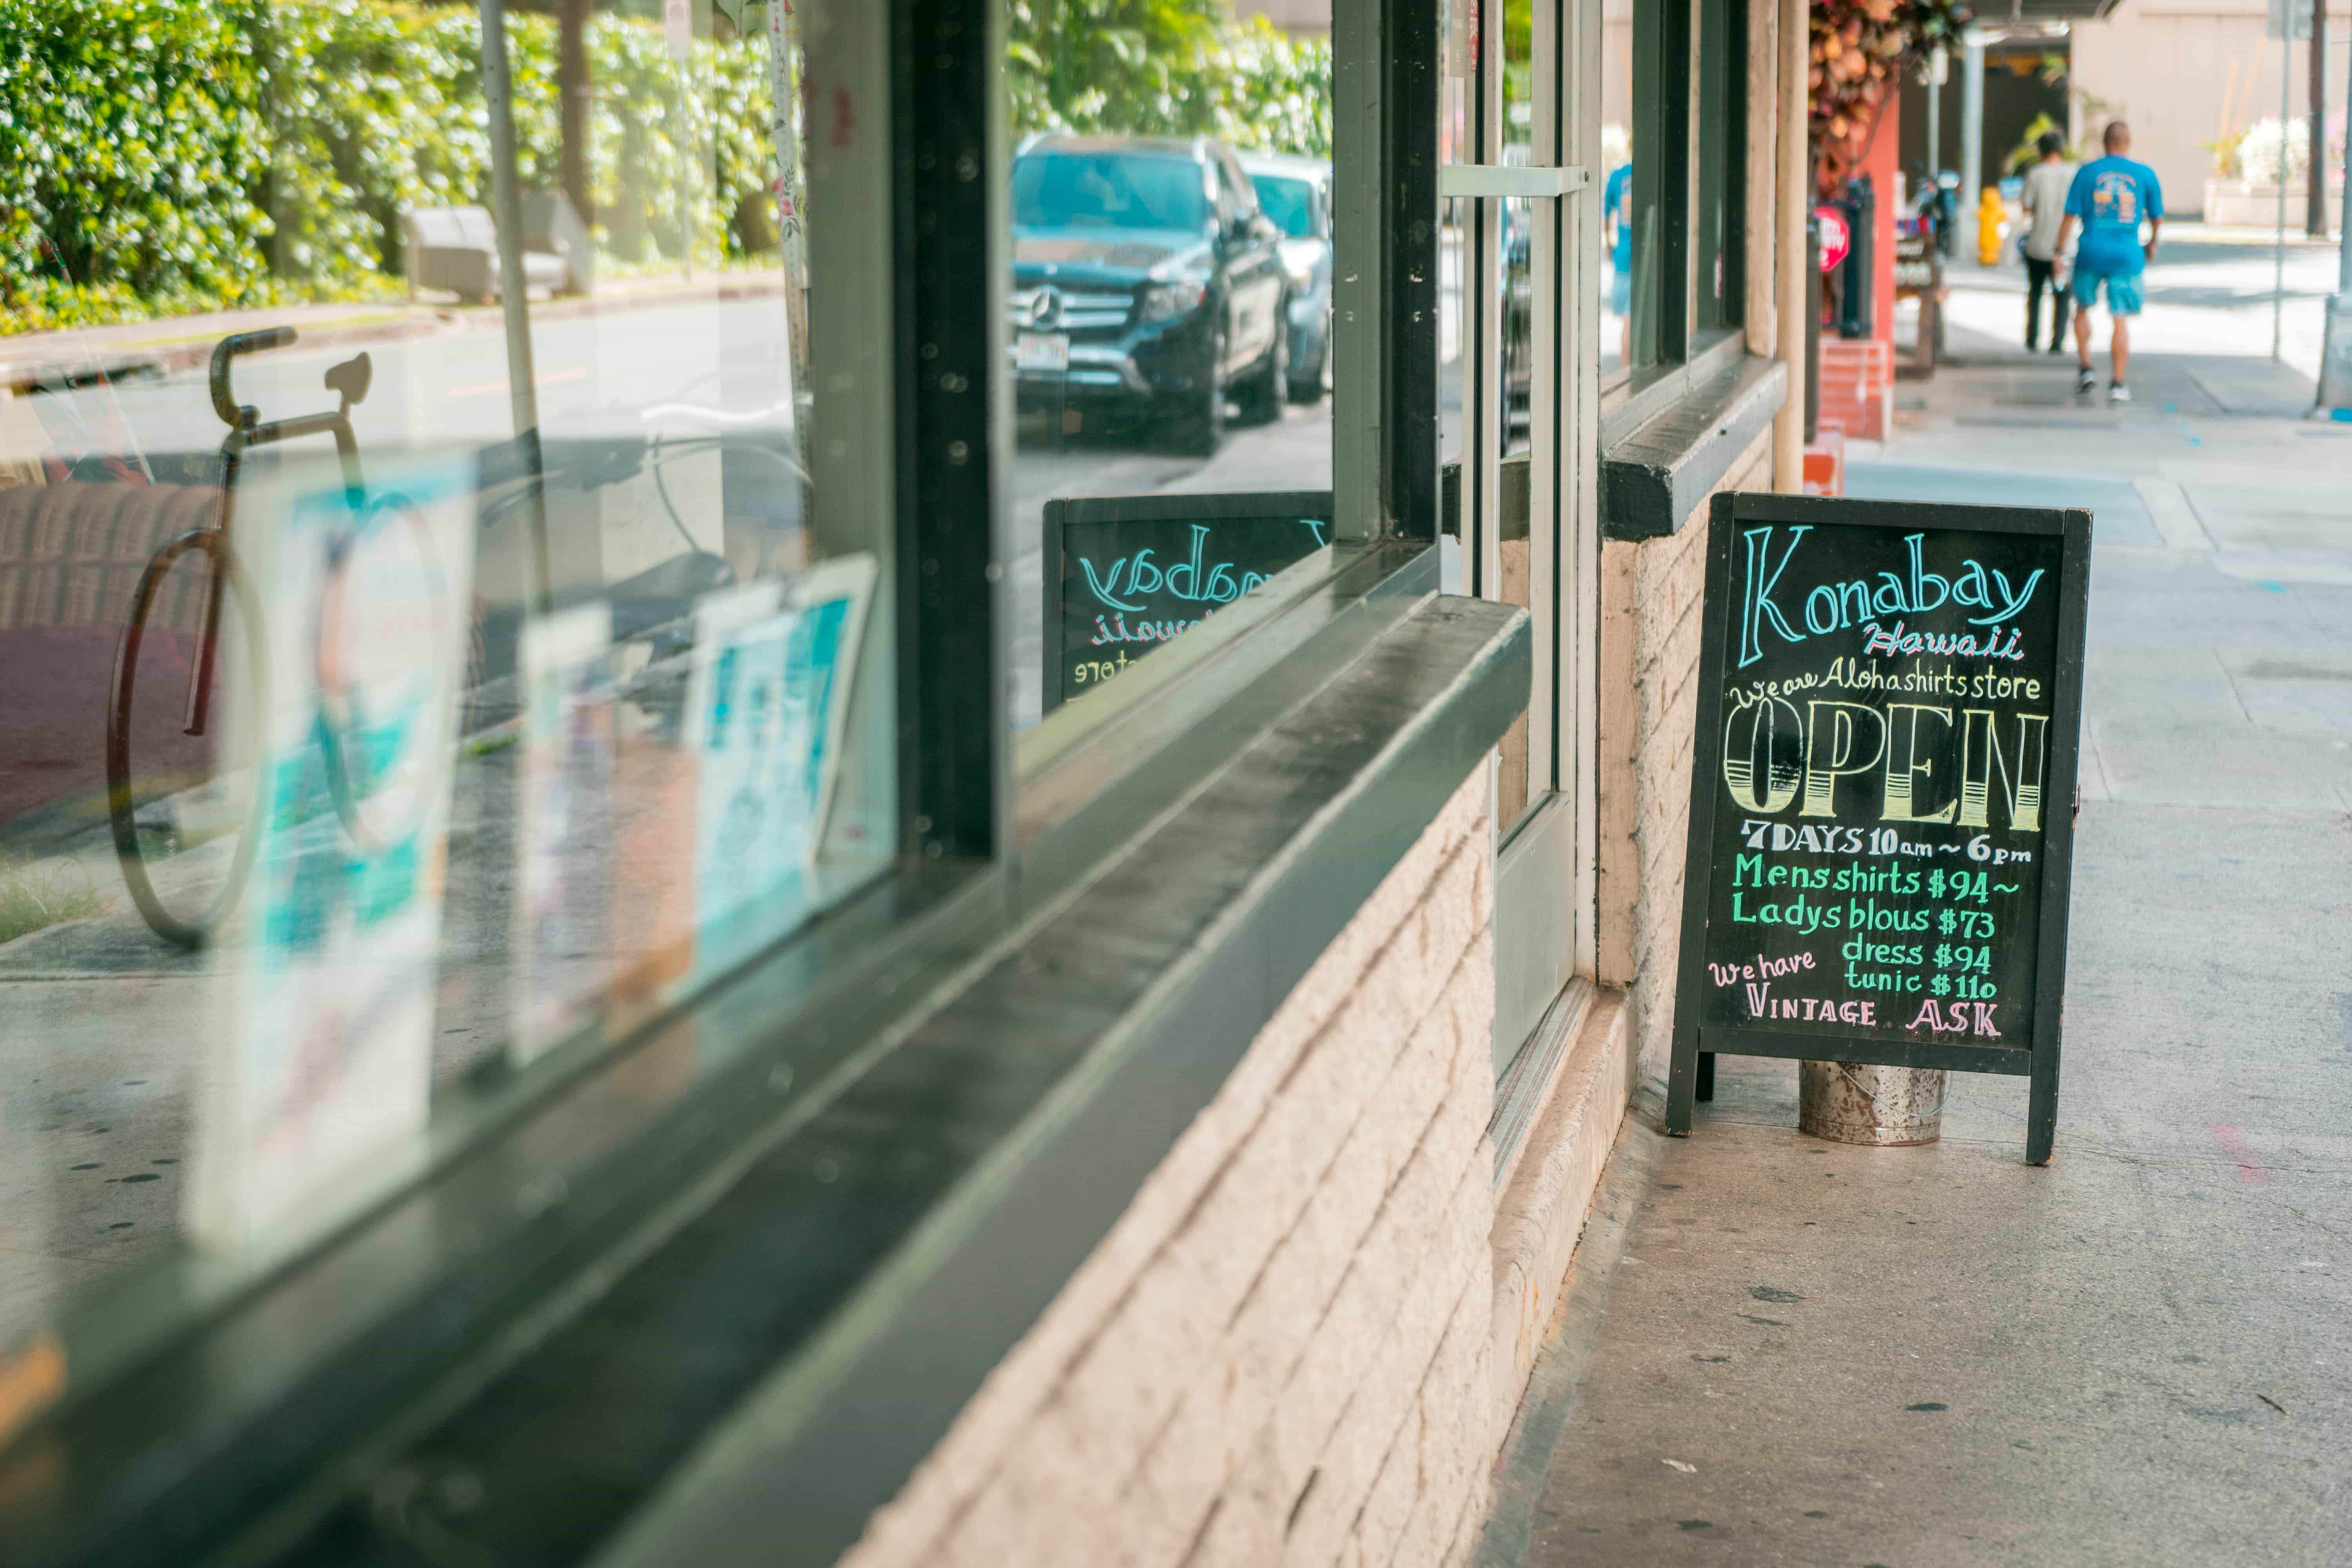 Konabay
Hawaii
We are Aloha shirts store
OPEN
7 DAYS 10am ~ 6pm
Mens shirts $94~
Ladys blous $73
dress $94
tunic $110
We have
VINTAGE ASK
Konabay
waii
tore